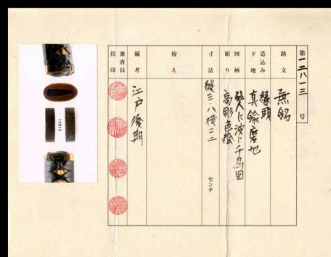 第一二八一三号
銘文 無銘
造込み 縁頭
下地 真鍮磨地
図柄 波に千鳥図
彫り 高彫色絵
寸法 縦三、八 横二、二 センチ
拵え
備考 江戸後期
審査員
捺印